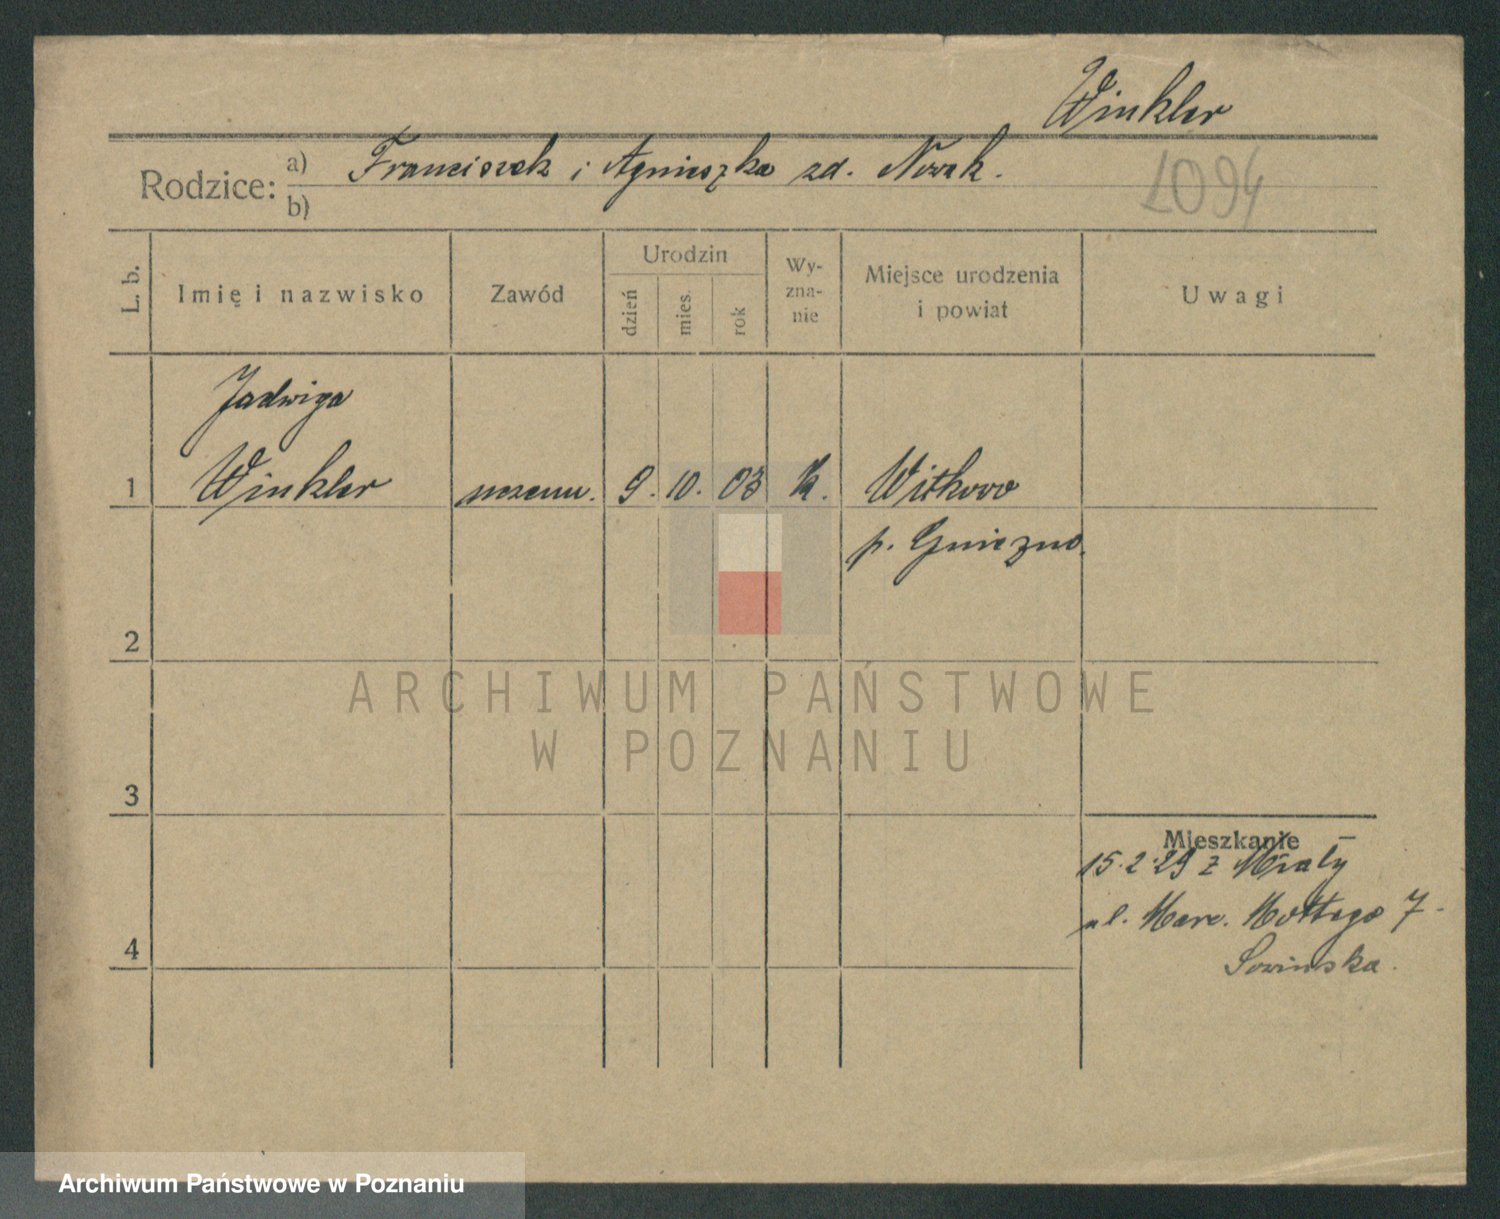 Winkler
Rodzice: a) Franciszek i Agnieszka zd. Nowak.
b)
1094
L. b.
Imię i nazwisko
Zawód
Urodzin
dzień
mies.
rok
Wy-
zna-
nie
Miejsce urodzenia
i powiat
Uwagi
Jadwiga
1 Winkler 9. 10. 03 k. Witkowo
p. Gniezno.
2
ARCHIWUM PAŃSTWOWE
W POZNANIU
3
Mieszkanie
15.2.29 z Miały
ul. Marc. Mottego 7
4
Sowińska.
Archiwum Państwowe w Poznaniu